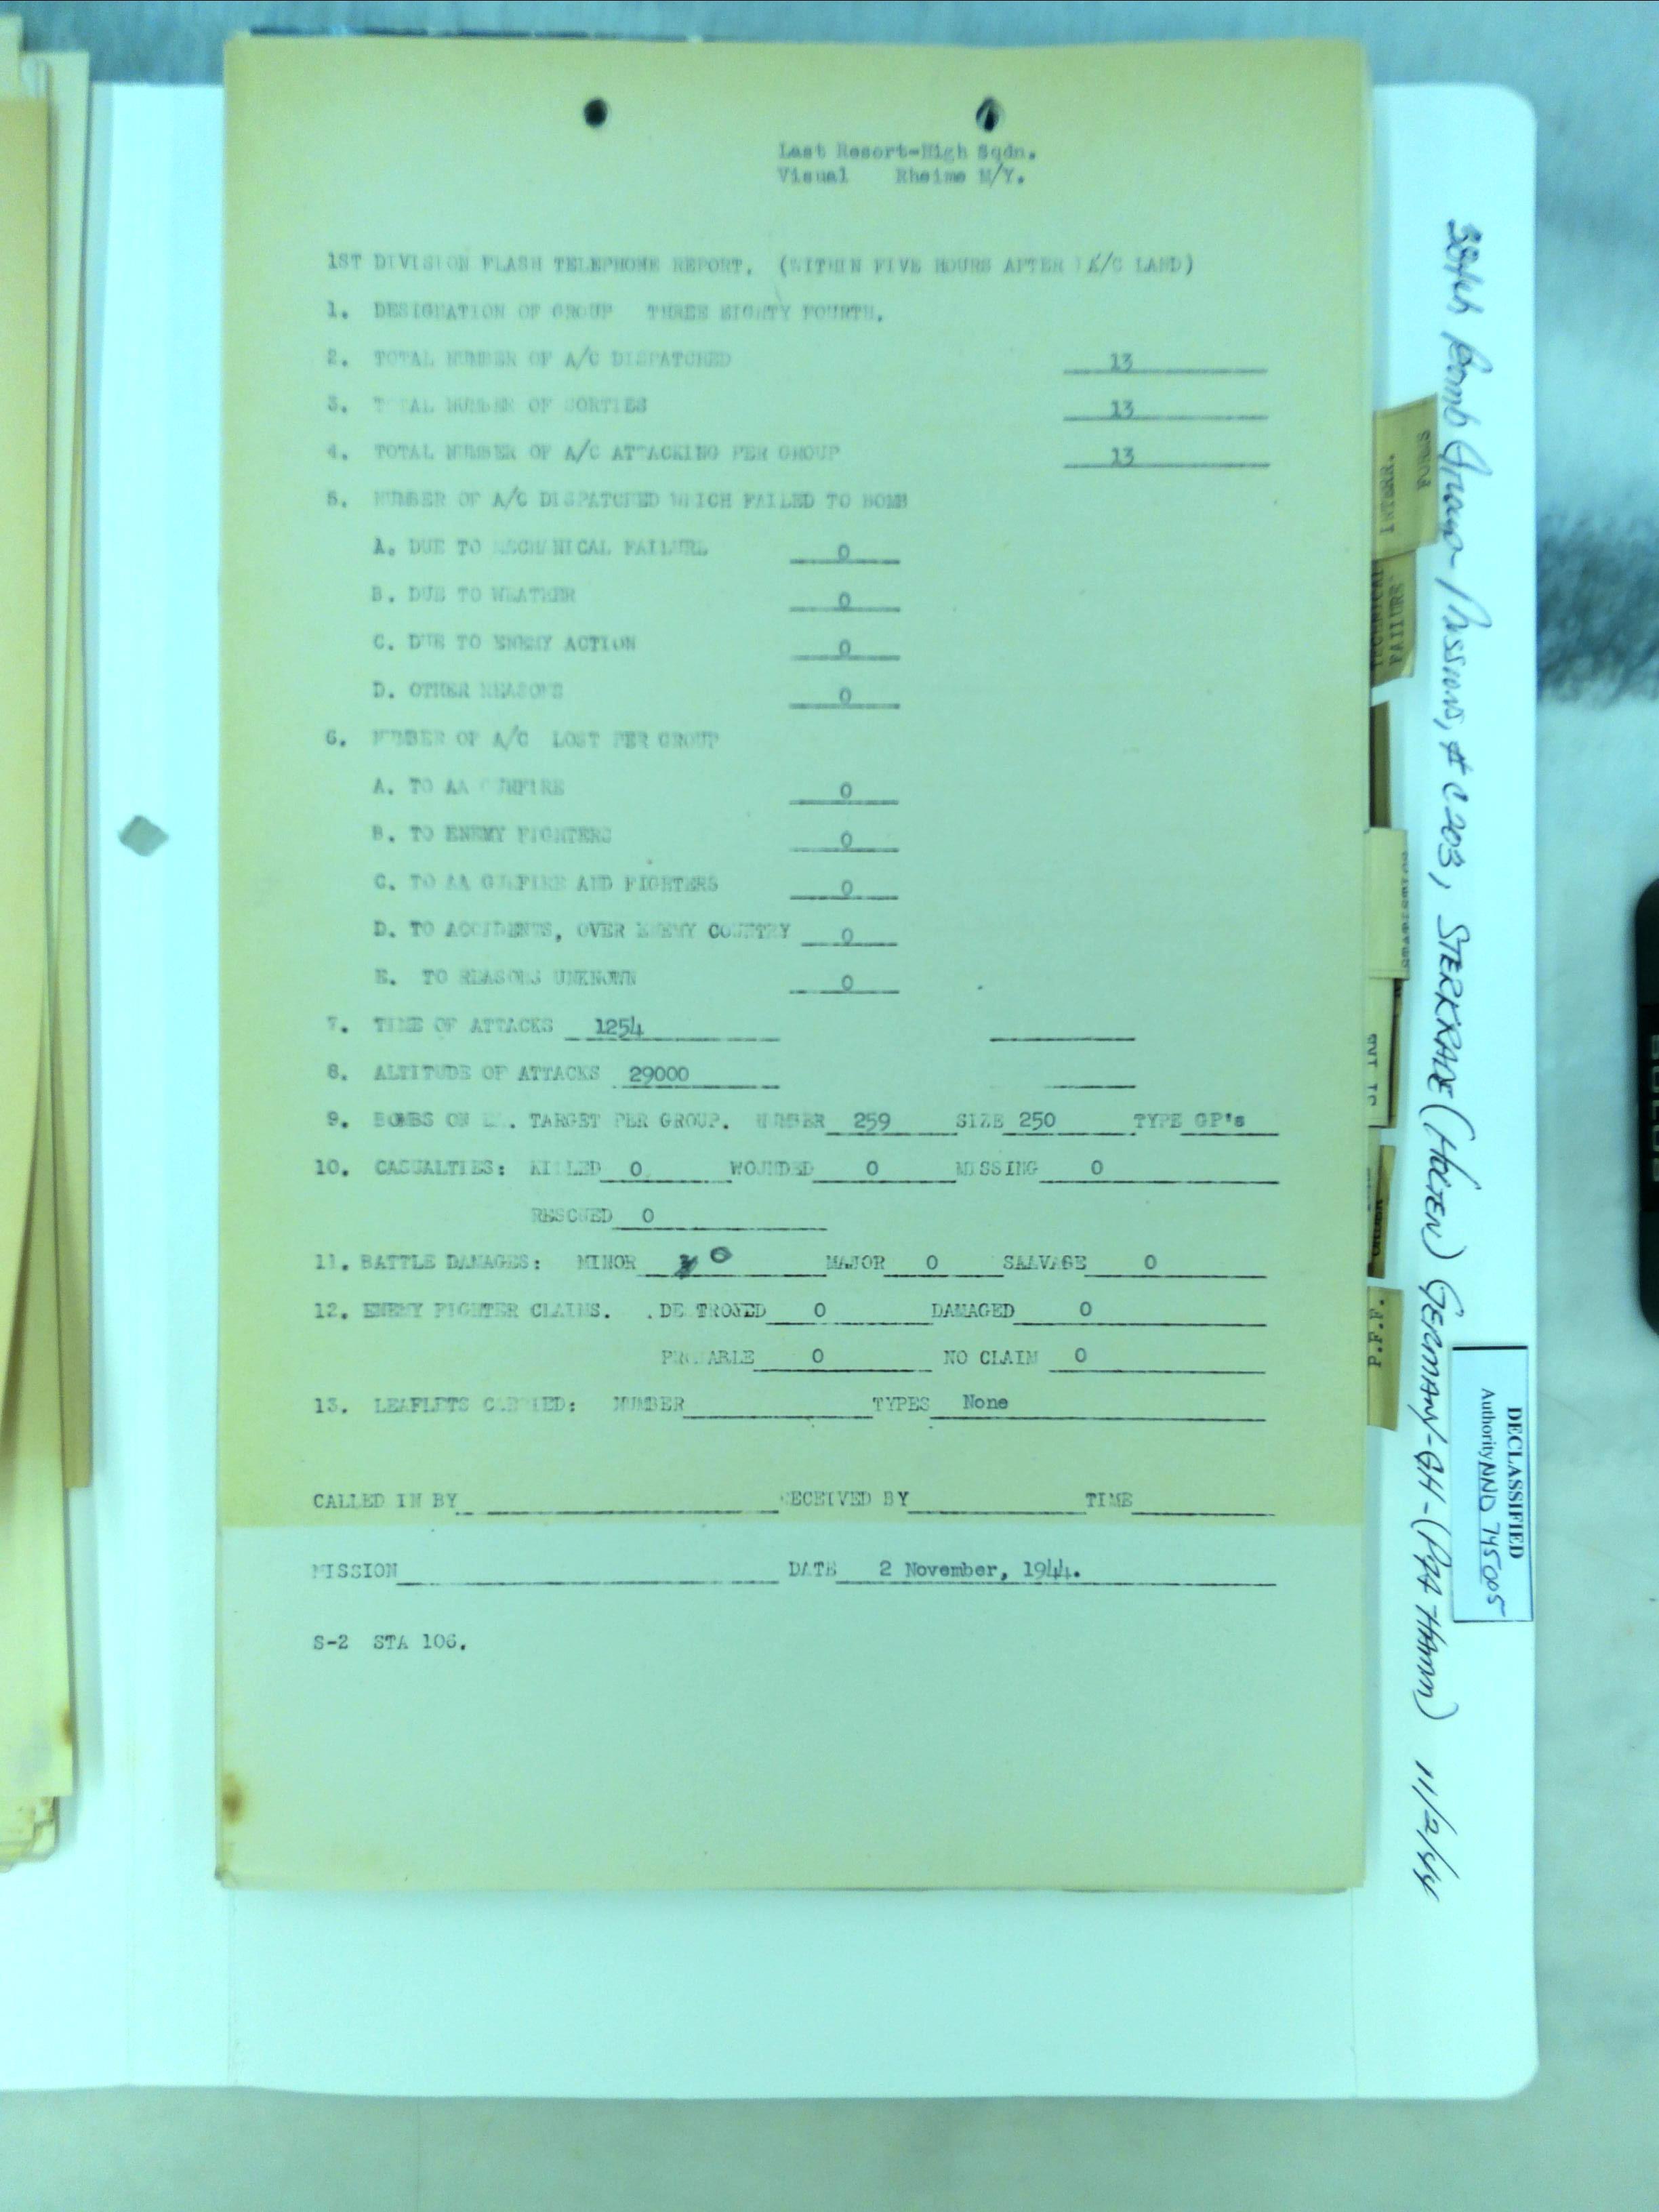 Last Resort-High Sqdn.
Visual Rheime M/Y.
1ST DIVISION FLASH TELEPHONE REPORT. (WITHIN FIVE HOURS AFTER A/C LAND)
1. DESIGNATION OF GROUP THREE EIGHTY FOURTH.
2. TOTAL NUMBER OF A/C DISPATCHED 13
3. TOTAL NUMBER OF SORTIES 13
4. TOTAL NUMBER OF A/C ATTACKING PER GROUP 13
5. NUMBER OF A/C DISPATCHED WHICH FAILED TO BOMB
A. DUE TO MECHANICAL FAILURE 0
B. DUE TO WEATHER 0
C. DUE TO ENEMY ACTION 0
D. OTHER REASONS 0
6. NUMBER OF A/C LOST PER GROUP
A. TO AA GUNFIRE 0
B. TO ENEMY FIGHTERS 0
C. TO AA GUNFIRE AND FIGHTERS 0
D. TO ACCIDENTS, OVER ENEMY COUNTRY 0
E. TO REASONS UNKNOWN 0
7. TIME OF ATTACKS 1254
8. ALTITUDE OF ATTACKS 29000
9. BOMBS ON EN. TARGET PER GROUP. NUMBER 259 SIZE 250 TYPE GP's
10. CASUALTIES: KILLED 0 WOUNDED 0 MISSING 0
RESCUED 0
11. BATTLE DAMAGES: MINOR 0 MAJOR 0 SALVAGE 0
12. ENEMY FIGHTER CLAIMS. DESTROYED 0 DAMAGED 0
PROBABLE 0 NO CLAIM 0
13. LEAFLETS CARRIED: NUMBER TYPES None
CALLED IN BY RECEIVED BY TIME
MISSION DATE 2 November, 1944.
S-2 STA 106.
INTERR.
FORMS
TECHNICAL
FAILURS
STATISTICS
P.F.F.
384th Bomb Group Missions, # 203, STERKRADE (HOLTEN) GERMANY-GH-(PFF HAMM) 11/2/44
DECLASSIFIED
Authority NND 745005